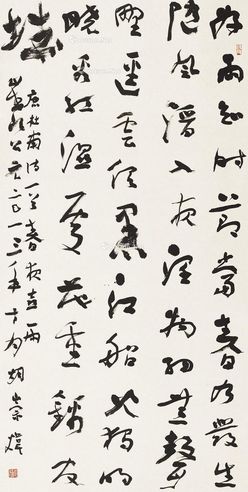 好雨知时節當春乃發生
隨風潛入夜潤物細無聲
野逕雲俱黑江船火獨明
曉看紅濕處花重錦官
城
唐杜甫詩一首春夜喜雨
公元二〇一三年十月胡崇煒